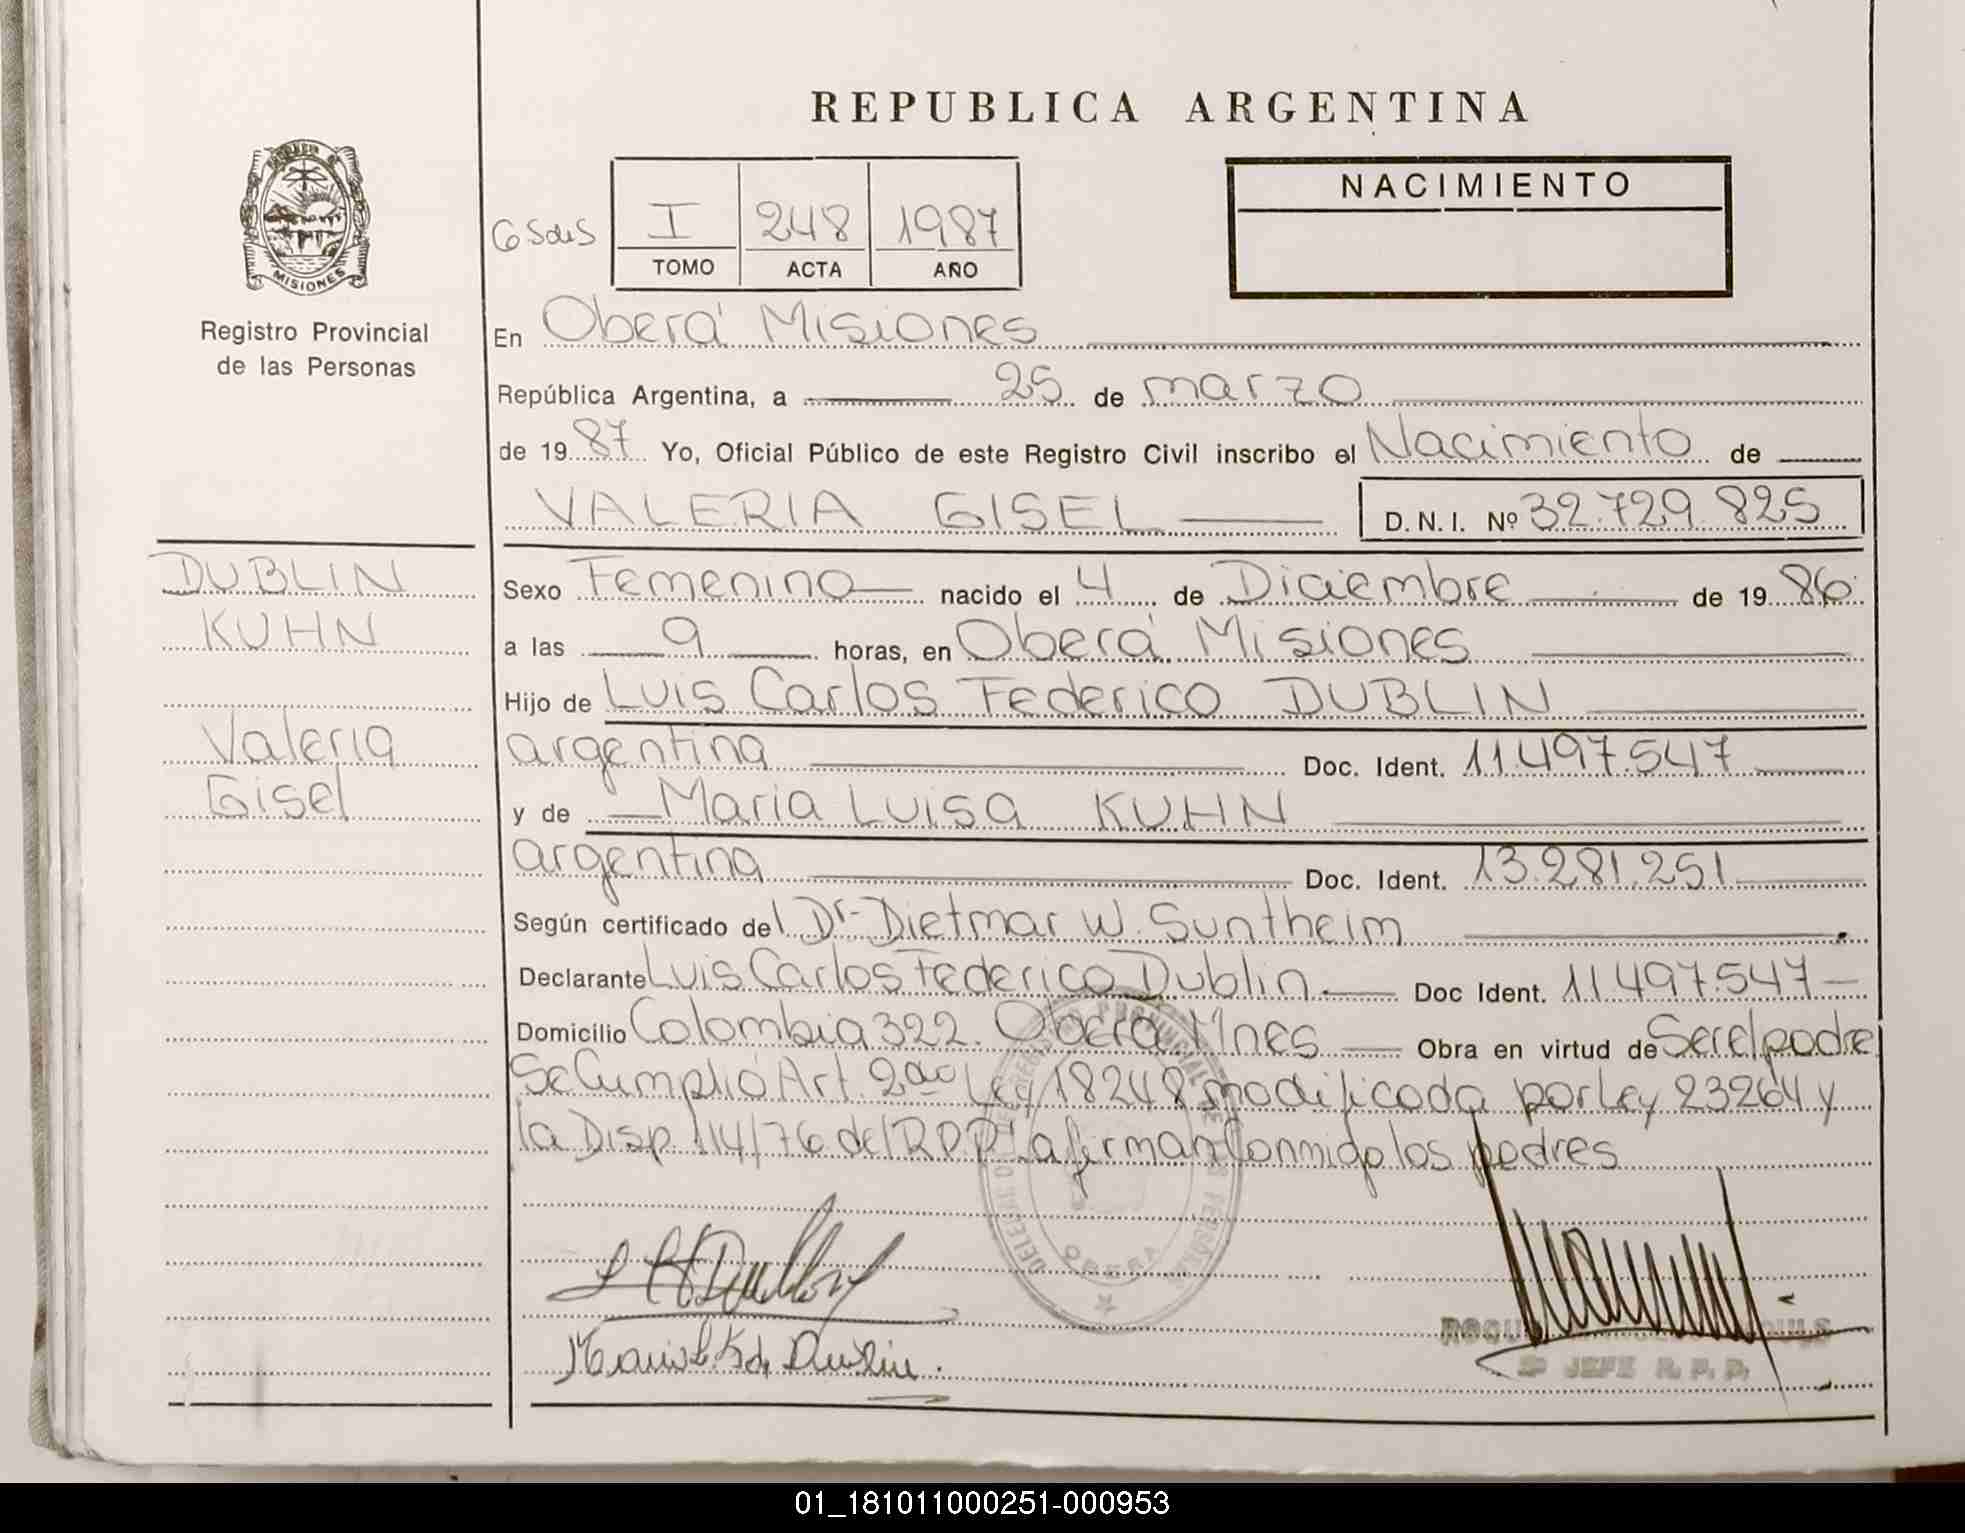 REPUBLICA ARGENTINA
MISIONES
Registro Provincial
de las Personas
I 248 1987
TOMO ACTA AÑO
NACIMIENTO
En Oberá Misiones
República Argentina, a 25 de marzo
de 1987 Yo, Oficial Público de este Registro Civil inscribo el Nacimiento de
VALERIA GISEL D.N.I. Nº 32.729.825
DUBLIN
KUHN
Valeria
Gisel
Sexo Femenino nacido el 4 de Diciembre de 1986
a las 9 horas, en Oberá Misiones
Hijo de Luis Carlos Federico DUBLIN
argentina Doc. Ident. 11.497.547
y de Maria Luisa KUHN
argentina Doc. Ident. 13.281.251
Según certificado del Dr. Dietmar W. Suntheim
Declarante Luis Carlos Federico Dublin Doc Ident. 11.497.547
Domicilio Colombia 322. Oberá Mnes Obra en virtud de Ser el padre
Se Cumplió Art. 2do Ley 18248 modificada por Ley 23264 y
la Disp. 114/76 del RPP firman Conmigo los padres
OBERA
JEFE R.P.P.
01_181011000251-000953